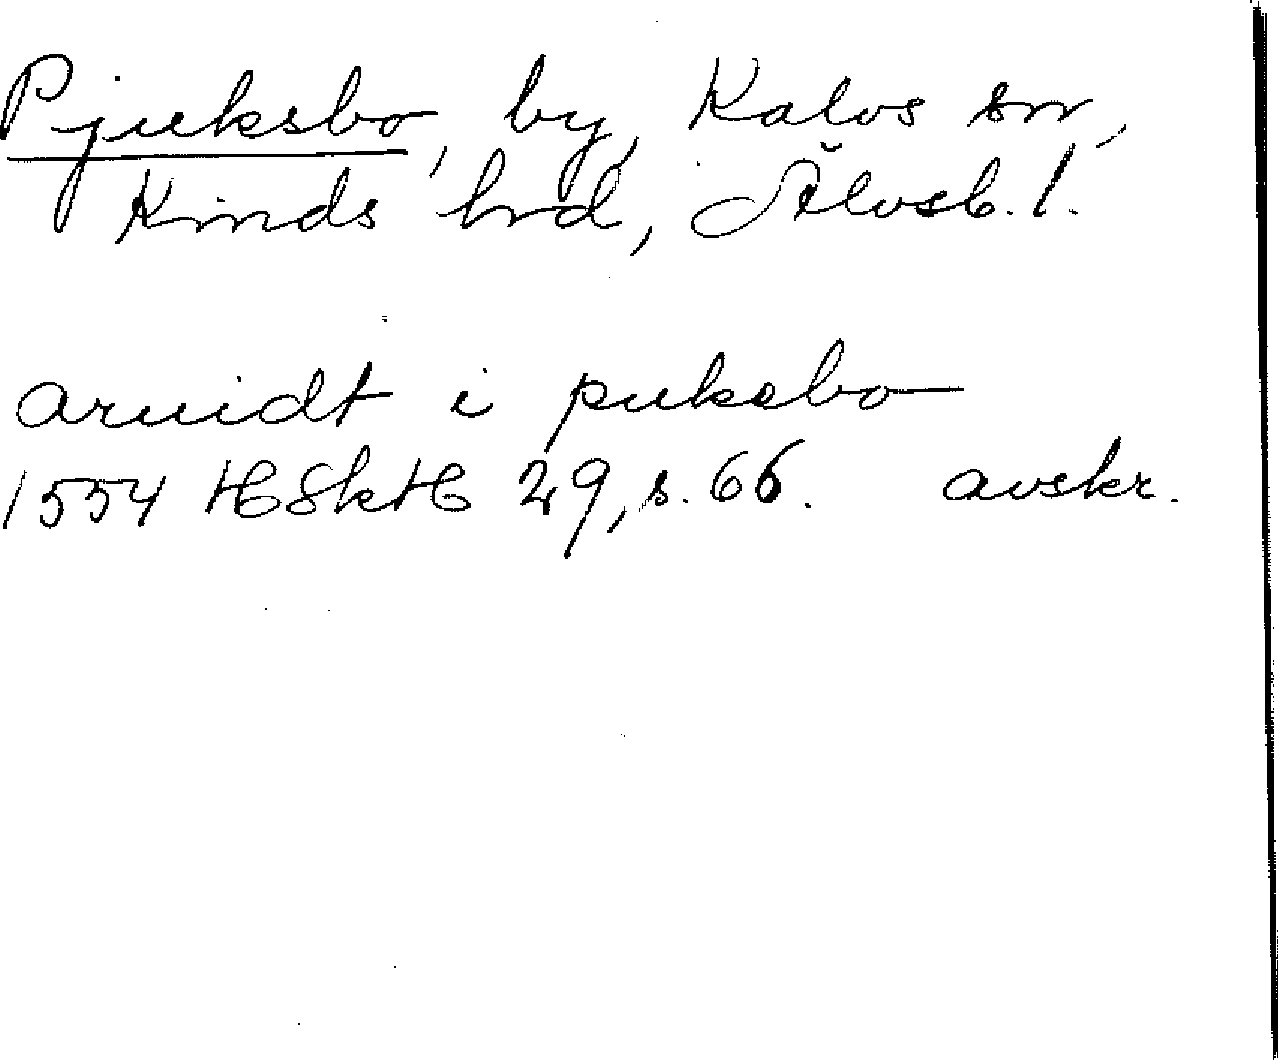 Pjuksbo, by, Kalvs sn,
Kinds hrd, Älvsb. l.
aruidt i puksbo
1554 HSkH 29, s. 66. avskr.